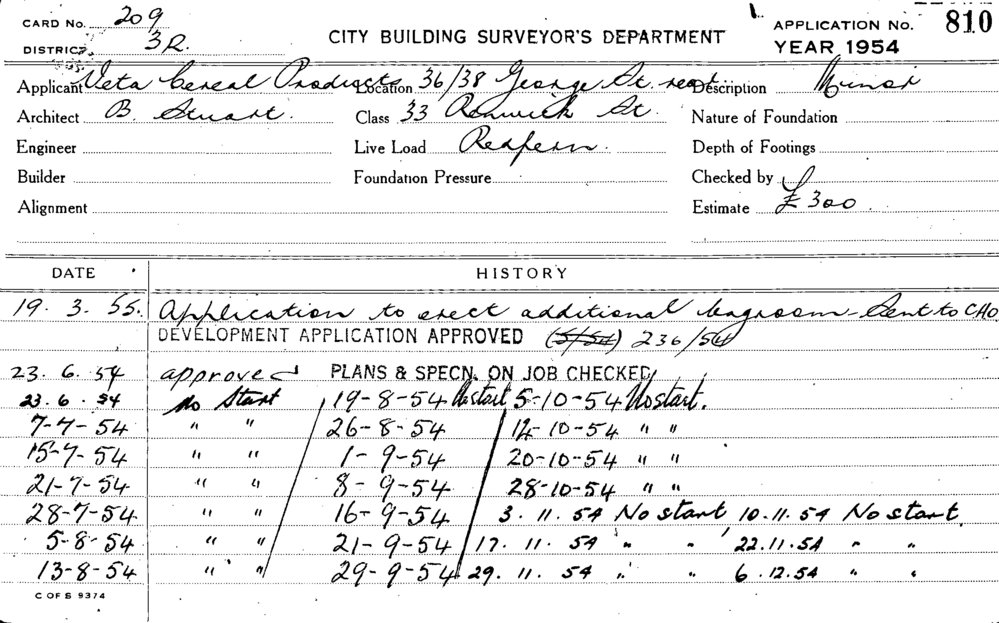 CARD No. 209
DISTRICT 3R.
CITY BUILDING SURVEYOR'S DEPARTMENT
APPLICATION No. 810
YEAR 1954
Applicant Veta Cereal Products Location 36/38 George St. rear Description Minor
Architect B. Stuart. Class 33 Renwick St. Nature of Foundation
Engineer Live Load Redfern. Depth of Footings
Builder Foundation Pressure Checked by
Alignment Estimate £ 300.
DATE HISTORY
19. 3. 55. Application to erect additional bagroom - Sent to CHO
DEVELOPMENT APPLICATION APPROVED (5/54) 236/54
23. 6. 54 approved PLANS & SPECN. ON JOB CHECKED
23. 6. 54 No Start 19-8-54 No start 5-10-54 No start.
7-7-54 " " 26-8-54 12-10-54 " "
15-7-54 " " 1-9-54 20-10-54 " "
21-7-54 " " 8-9-54 28-10-54 " "
28-7-54 " " 16-9-54 3. 11. 54 No start 10.11.54 No start.
5-8-54 " " 21-9-54 17. 11. 54 " " 22.11.54 " "
13-8-54 " " 29-9-54 29. 11. 54 " " 6.12.54 " "
C OF S 9374